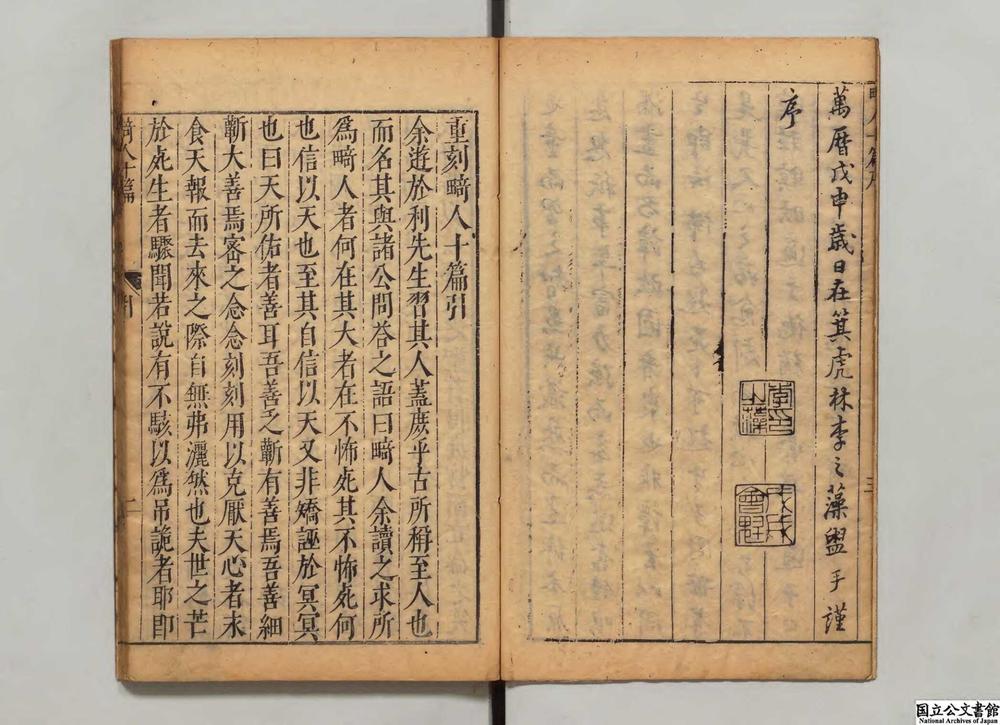 萬曆戊申歲日在箕虎林李之藻盥手謹
序
李印之藻
戊戌會魁
重刻畸人十篇引
余遊於利先生習其人蓋庶乎古所稱至人也
而名其與諸公問荅之語曰畸人余讀之求所
爲畸人者何在其大者在不怖死其不怖死何
也信以天也至其自信以天又非矯誣於冥冥
也曰天所佑者善耳吾善之蘄有善焉吾善細
蘄大善焉密之念念刻刻用以克厭天心者未
食天報而去來之際自無弗灑然也夫世之芒
於死生者驟聞若說有不駭以爲吊詭者耶卽
畸人十篇
引
二
国立公文書館
National Archives of Japan